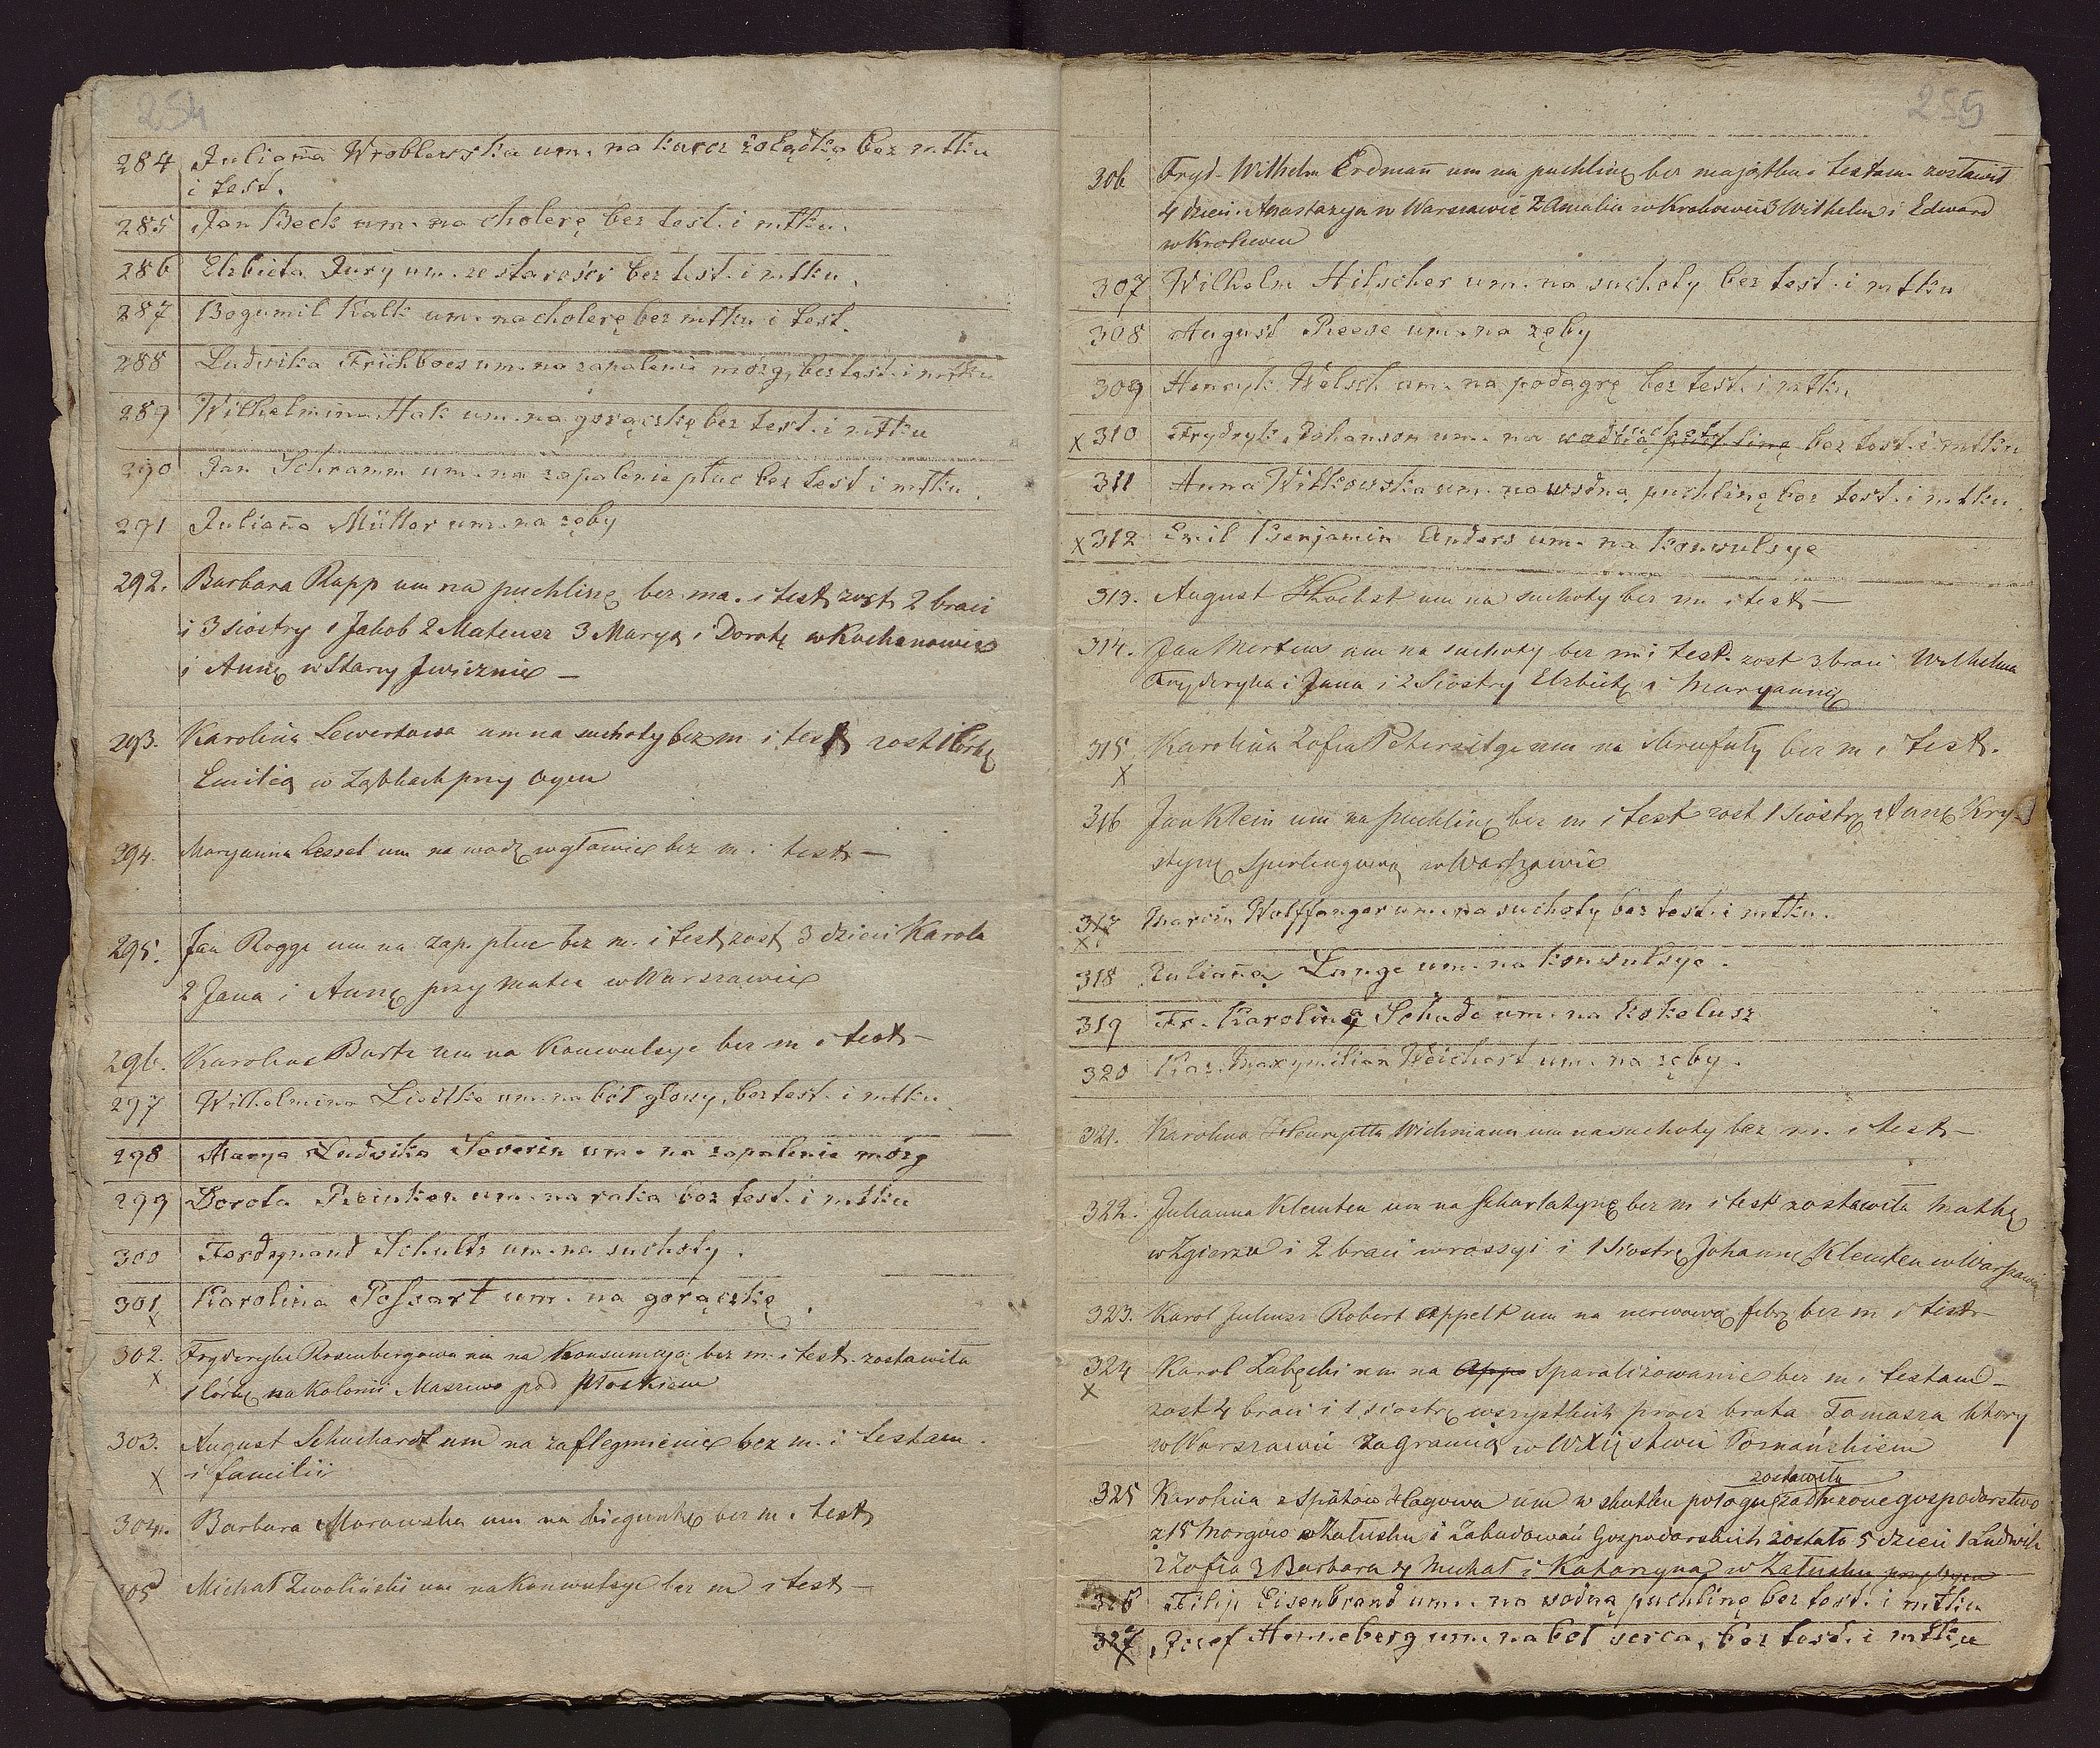 254
284 Julian̄a Wroblewska um. na kurcz żołądka bez mtku
i test.
285 Jan Beck um. na cholerę bez test. i mtku.
286 Elzbieta Jury um. ze starości bez test. i mtku.
287 Bogumil Kalk um. na cholerę bez mtku i test.
288 Ludwika Frichboes um. na zapalenie mózg. bez test. i mtku
289 Wilhelmina Hak um. na gorączkę bez test. i mtku
290 Jan Schramm um. na zapalenie płuc bez test i mtku.
291 Julian̄a Müller um. na zęby
292. Barbara Rapp um na puchlinę bez ma. i test zost 2 braci
i 3 siostry 1 Jakob 2 Mateusz 3 Marya i Dorotę w Kochanowie
i Annę w Stary Jwicznie –
293. Karolina Lewertowa um na suchoty bez m i test zost 1 córkę
Emilią w Ząbkach przy Oycu
294. Maryanna Lessel um na wodę w głowie bez m. i test –
295. Jan Rogge um na zap. płuc bez m. i test zost 3 dzieci Karola
2 Jana i Annę przy matce w Warszawie
296. Karolina Bartz um na Konwulsye bez m i test –
297 Wilhelmina Liedtke um. na ból głowy, bez test. i mtku
298 Marya Ludwika Severin um. na zapalenie mózg
299 Dorota Reinker um. na raka bez test. i mtku
300 Ferdynand Schultz um. na suchoty.
301 Karolina Possart um. na gorączkę.
x
302. Fryderyka Rosenbergowa um na Konsumcyją bez m. i test. zostawiła
x 1 Córkę na Kolonii Maszewo pod Płockiem
303. August Schuchardt um na zaflegmienie bez m. i testam.
x i familii
304. Barbara Morawska um na biegunkę bez m. i test
305 Michał Zwoliński um na Konwulsye bez m i test –
255
306 Fryd. Wilhelm Erdman̄ um na puchlinę bez majątku i testam. zostawił
4 dzieci 1 Anastazya w Warszawie 2 Amalia w Krakowie 3 Wilhelm i Edward
w Krolewcu
307 Wilhelm Hilscher um. na suchoty bez test. i mtku
308 August Reese um. na zęby
309 Henryk Welsch um. na podagrę bez test. i mtku.
suchoty
x 310 Fryderyk Johanson um. na wodną puchlinę bez test. i mtku
311 Anna Witkowska um. na wodną puchlinę bez test. i mtku.
x 312 Emil Benjamin Anders um. na konwulsye
313. August Hoebst um na suchoty bez m. i test –
314. Jan Mertens um na suchoty bez m i test. zost 3 braci Wilhelma
Fryderyka i Jana i 2 Siostry Elzbietę i Maryannę
315 Karolina Zofia um na skrufuły bez m i test.
x
316 Jan Klein um na puchlinę bez m i test zost 1 Siostrę Annę Kry-
stynę Sperlingową w Warszawie
317 Marcin Wolffanger um. na suchoty bez test. i mtku.
x
318 Julian̄a Lange um. na konwulsye.
319 Fr. Karolina Schade um. na kokelusz
320 Kar. Maxymilian Weichert um. na zęby.
321. Karolina Henryetta Wichmann um na suchoty bez m. i test –
322. Julianna Klemten um na Szkarlatynę bez m i test zostawiła Matkę
w Zgierzu i 2 braci w rossyi i 1 Siostrę Johannę Klemten w Warszawie
323. Karol Juliusz Robert Appelt um na nerwową febrę bez m i test –
324 Karol Łubęcki um na App Sparaliżowanie bez m i testam –
x zost 4 braci i 1 siostrę wszystkich procz brata Tomasza ktory
w Warszawie Zagranicą w W Xięstwie Poznańskiem
zostawiła
325 Karolina z Spätów Hagowa um w skutku połogu zadłużone gospodarstwo
z 15 Morgów w Załusku i Zabudowań Gospodarskich zostało 5 dzieci 1 Ludwik
2 Zofia 3 Barbara 4 Michał i Katarzyna w Załusku przy oycu
326 Filip Eisenbrand um. na wodną puchlinę bez test. i mtku
327 Jozef Henneberg um. na ból serca, bez test. i mtku
x